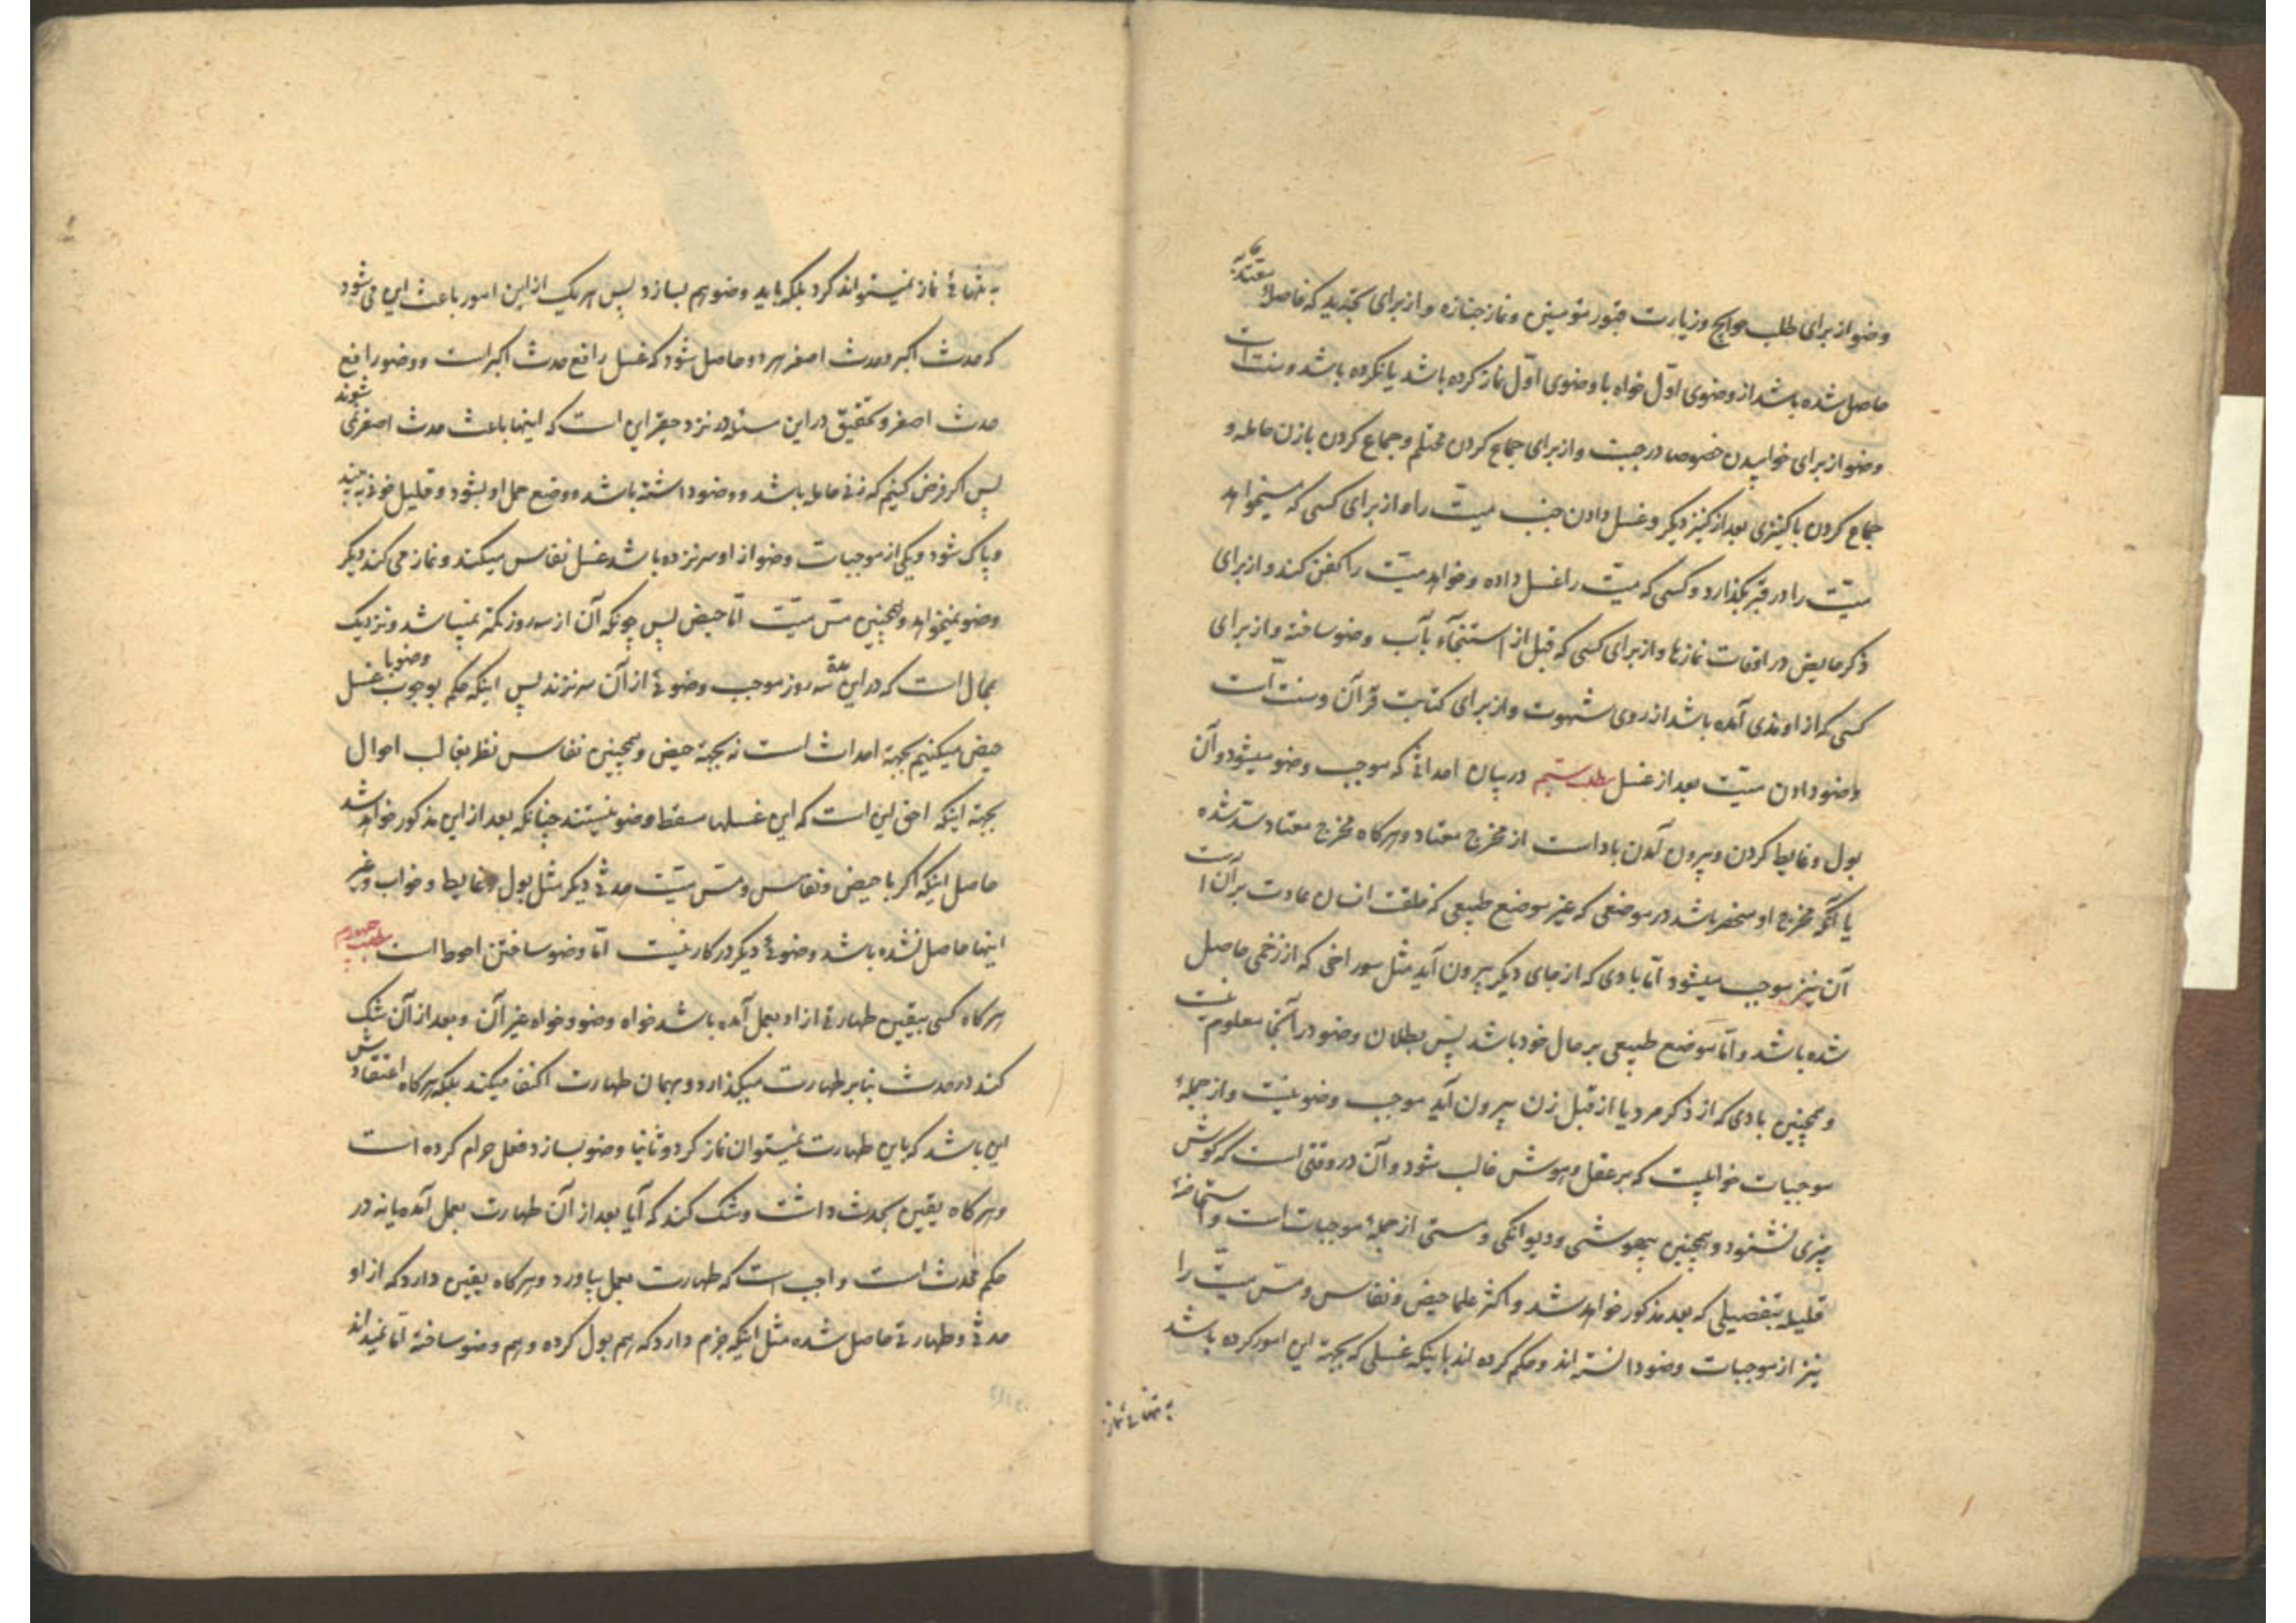 وضو از برای طلب حوایج و زیارت قبور مؤمنین و نماز جنازه و از برای تجدید که فاصلهٔ معتد به
حاصل شده باشد از وضوی اوّل خواه با وضوی اوّل نماز کرده باشد یا نکرده باشد و سنت است
وضو از برای خوابیدن خصوصا در جنب و از برای جماع کردن محتلم و جماع کردن با زن حامله و
جماع کردن با کنیزی بعد از کنیز دیگر و غسل دادن جنب میّت را و از برای کسی که میخواهد
میّت را در قبر بگذارد و کسی که میّت را غسل داده و خواهد میّت را کفن کند و از برای
ذکر حایض در اوقات نمازها و از برای کسی که قبل از استنجآء بآب وضو ساخته و از برای
کسی که از او مذی آمده باشد از روی شهوت و از برای کتابت قرآن و سنّت است
وضو دادن میّت بعد از غسل مطلب ششم در بیان احداثی که موجب وضو میشود و آن
بول و غایط کردن و بیرون آمدن باد است از مخرج معتاد و هر کاه مخرج معتاد سدّ شده
یا آنکه مخرج او منحصر باشد در موضعی که غیر موضع طبیعی که خلقت انسان عادت بر آن است
آن نیز موجب میشود امّا بادی که از جای دیگر بیرون آید مثل سوراخی که از زخمی حاصل
شده باشد و امّا موضع طبیعی بر حال خود باشد پس بطلان وضو در آنجا معلوم نیست
و همچنین بادی که از ذکر مرد یا از قبل زن بیرون آید موجب وضو نیست و از جملهٔ
موجبات خوابیست که بر عقل و هوش غالب شود و آن در وقتی است که کوش
چیزی نشنود و همچنین بیهوشی و دیوانکی و مستی از جملهٔ موجبات است و استحاضهٔ
قلیله بتفصیلی که بعد مذکور خواهد شد و اکثر علما حیض و نفاس و مسّ میّت را
نیز از موجبات وضو دانسته اند و حکم کرده اند باینکه غسلی که بجهة این امور کرده باشد
به تنهائی نماز
به تنهائی نماز نمیتواند کرد بلکه باید وضو هم بسازد پس هر یک از این امور باعث این می شود
که حدث اکبر و حدث اصغر هر دو حاصل شود که غسل رافع حدث اکبر است و وضو رافع
حدث اصغر و تحقیق در این مسئله در نزد حقیر این است که اینها باعث حدث اصغر نمی شوند
پس اکر فرض کنیم که زنی حامله باشد و وضو داشته باشد و وضع حمل او بشود و قلیل خونی به بیند
و پاک شود و یکی از موجبات وضو از او سر نزده باشد غسل نفاس میکند و نماز می کند دیگر
وضو نمیخواهد و همچنین مسّ میّت امّا حیض پس چونکه آن از سه روز کمتر نمیباشد و نزدیک
بمحال است که در این سه روز موجب وضوئی از آن سر نزند پس اینکه حکم بوجوب وضو با غسل
حیض میکنیم بجهة احداث است نه بجهة حیض و همچنین نفاس نظر بغالب احوال
بجهة اینکه احق این است که این غسلها مسقط وضو نیستند چنانکه بعد از این مذکور خواهد شد
حاصل اینکه اکر با حیض و نفاس و مسّ میّت حدثی دیگر مثل بول و غایط و خواب و غیر
اینها حاصل نشده باشد وضوئی دیگر در کار نیست امّا وضو ساختن احوط است مطلب چهارم
هر کاه کسی بیقین طهارتی از او بعمل آمده باشد خواه وضو و خواه غیر آن و بعد از آن شک
کند در حدث بنا بر طهارت میگذارد و بهمان طهارت اکتفا میکند بلکه هر کاه اعتقادش
این باشد که باین طهارت نمیتوان نماز کرد و ثانیا وضو بسازد فعل حرام کرده است
و هر کاه یقین بحدث داشت و شک کند که آیا بعد از آن طهارت بعمل آمده یا نه در
حکم محدث است واجب است که طهارت بعمل بیاورد و هر کاه یقین دارد که از او
حدثی و طهارتی حاصل شده مثل اینکه جزم دارد که هم بول کرده و هم وضو ساخته امّا نمیداند